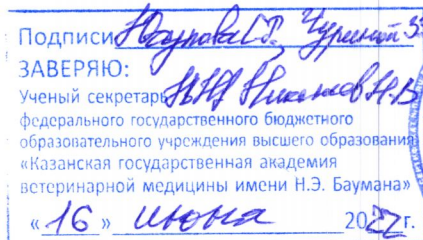 Подписи Чуриной З
ЗАВЕРЯЮ:
Ученый секретарь
федерального государственного бюджетного
образовательного учреждения высшего образования
«Казанская государственная академия
ветеринарной медицины имени Н.Э. Баумана»
«16» июня 2022г.